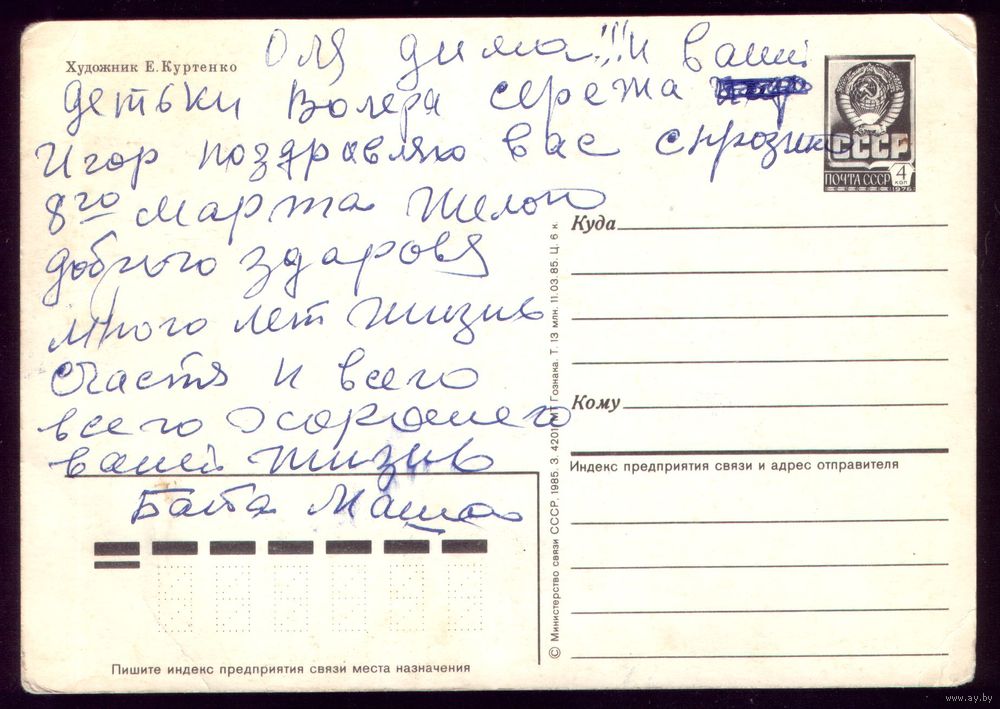 Художник Е. Куртенко
Оля дима!!! и ваши
детьки Волера сережа
Игор поздравляю вас
8го марта Желою
доброго здаровя
много лет жизнь
счастя и всего
всего хорошего
вашей жизнь
Баба Маша
СССР
ПОЧТА СССР
4
коп
1976
Куда
Кому
Индекс предприятия связи и адрес отправителя
© Министерство связи СССР. 1985. З. 4201. МТ Гознака. Т. 13 млн. 11.03.85. Ц. 6 к.
Пишите индекс предприятия связи места назначения
www.ay.by